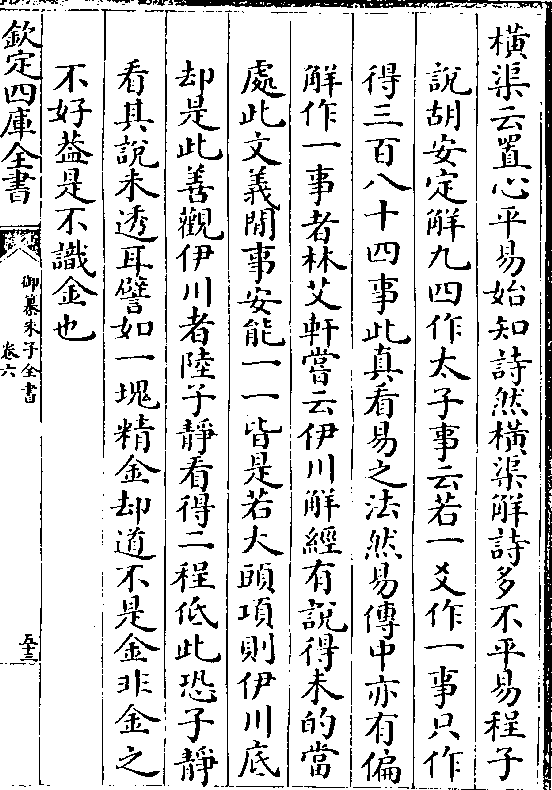 橫渠云置心平易始知詩然橫渠解詩多不平易程子
說胡安定解九四作太子事云若一爻作一事只作
得三百八十四事此真看易之法然易傳中亦有偏
解作一事者林艾軒嘗云伊川解經有說得未的當
處此文義閒事安能一一皆是若大頭項則伊川底
却是此善觀伊川者陸子靜看得二程低此恐子靜
看其說未透耳譬如一塊精金却道不是金非金之
不好葢是不識金也
欽定四庫全書
御纂朱子全書
卷六
五十三